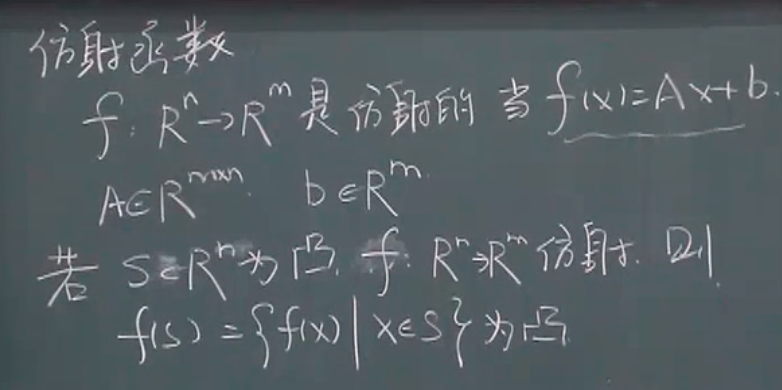 仿射函数
f: Rⁿ→Rᵐ 是仿射的 当 f(x)=Ax+b.
A∈Rᵐˣⁿ. b∈Rᵐ.
若 S∈Rⁿ为凸. f: Rⁿ→Rᵐ 仿射. 则
f(S) = {f(x) | x∈S} 为凸